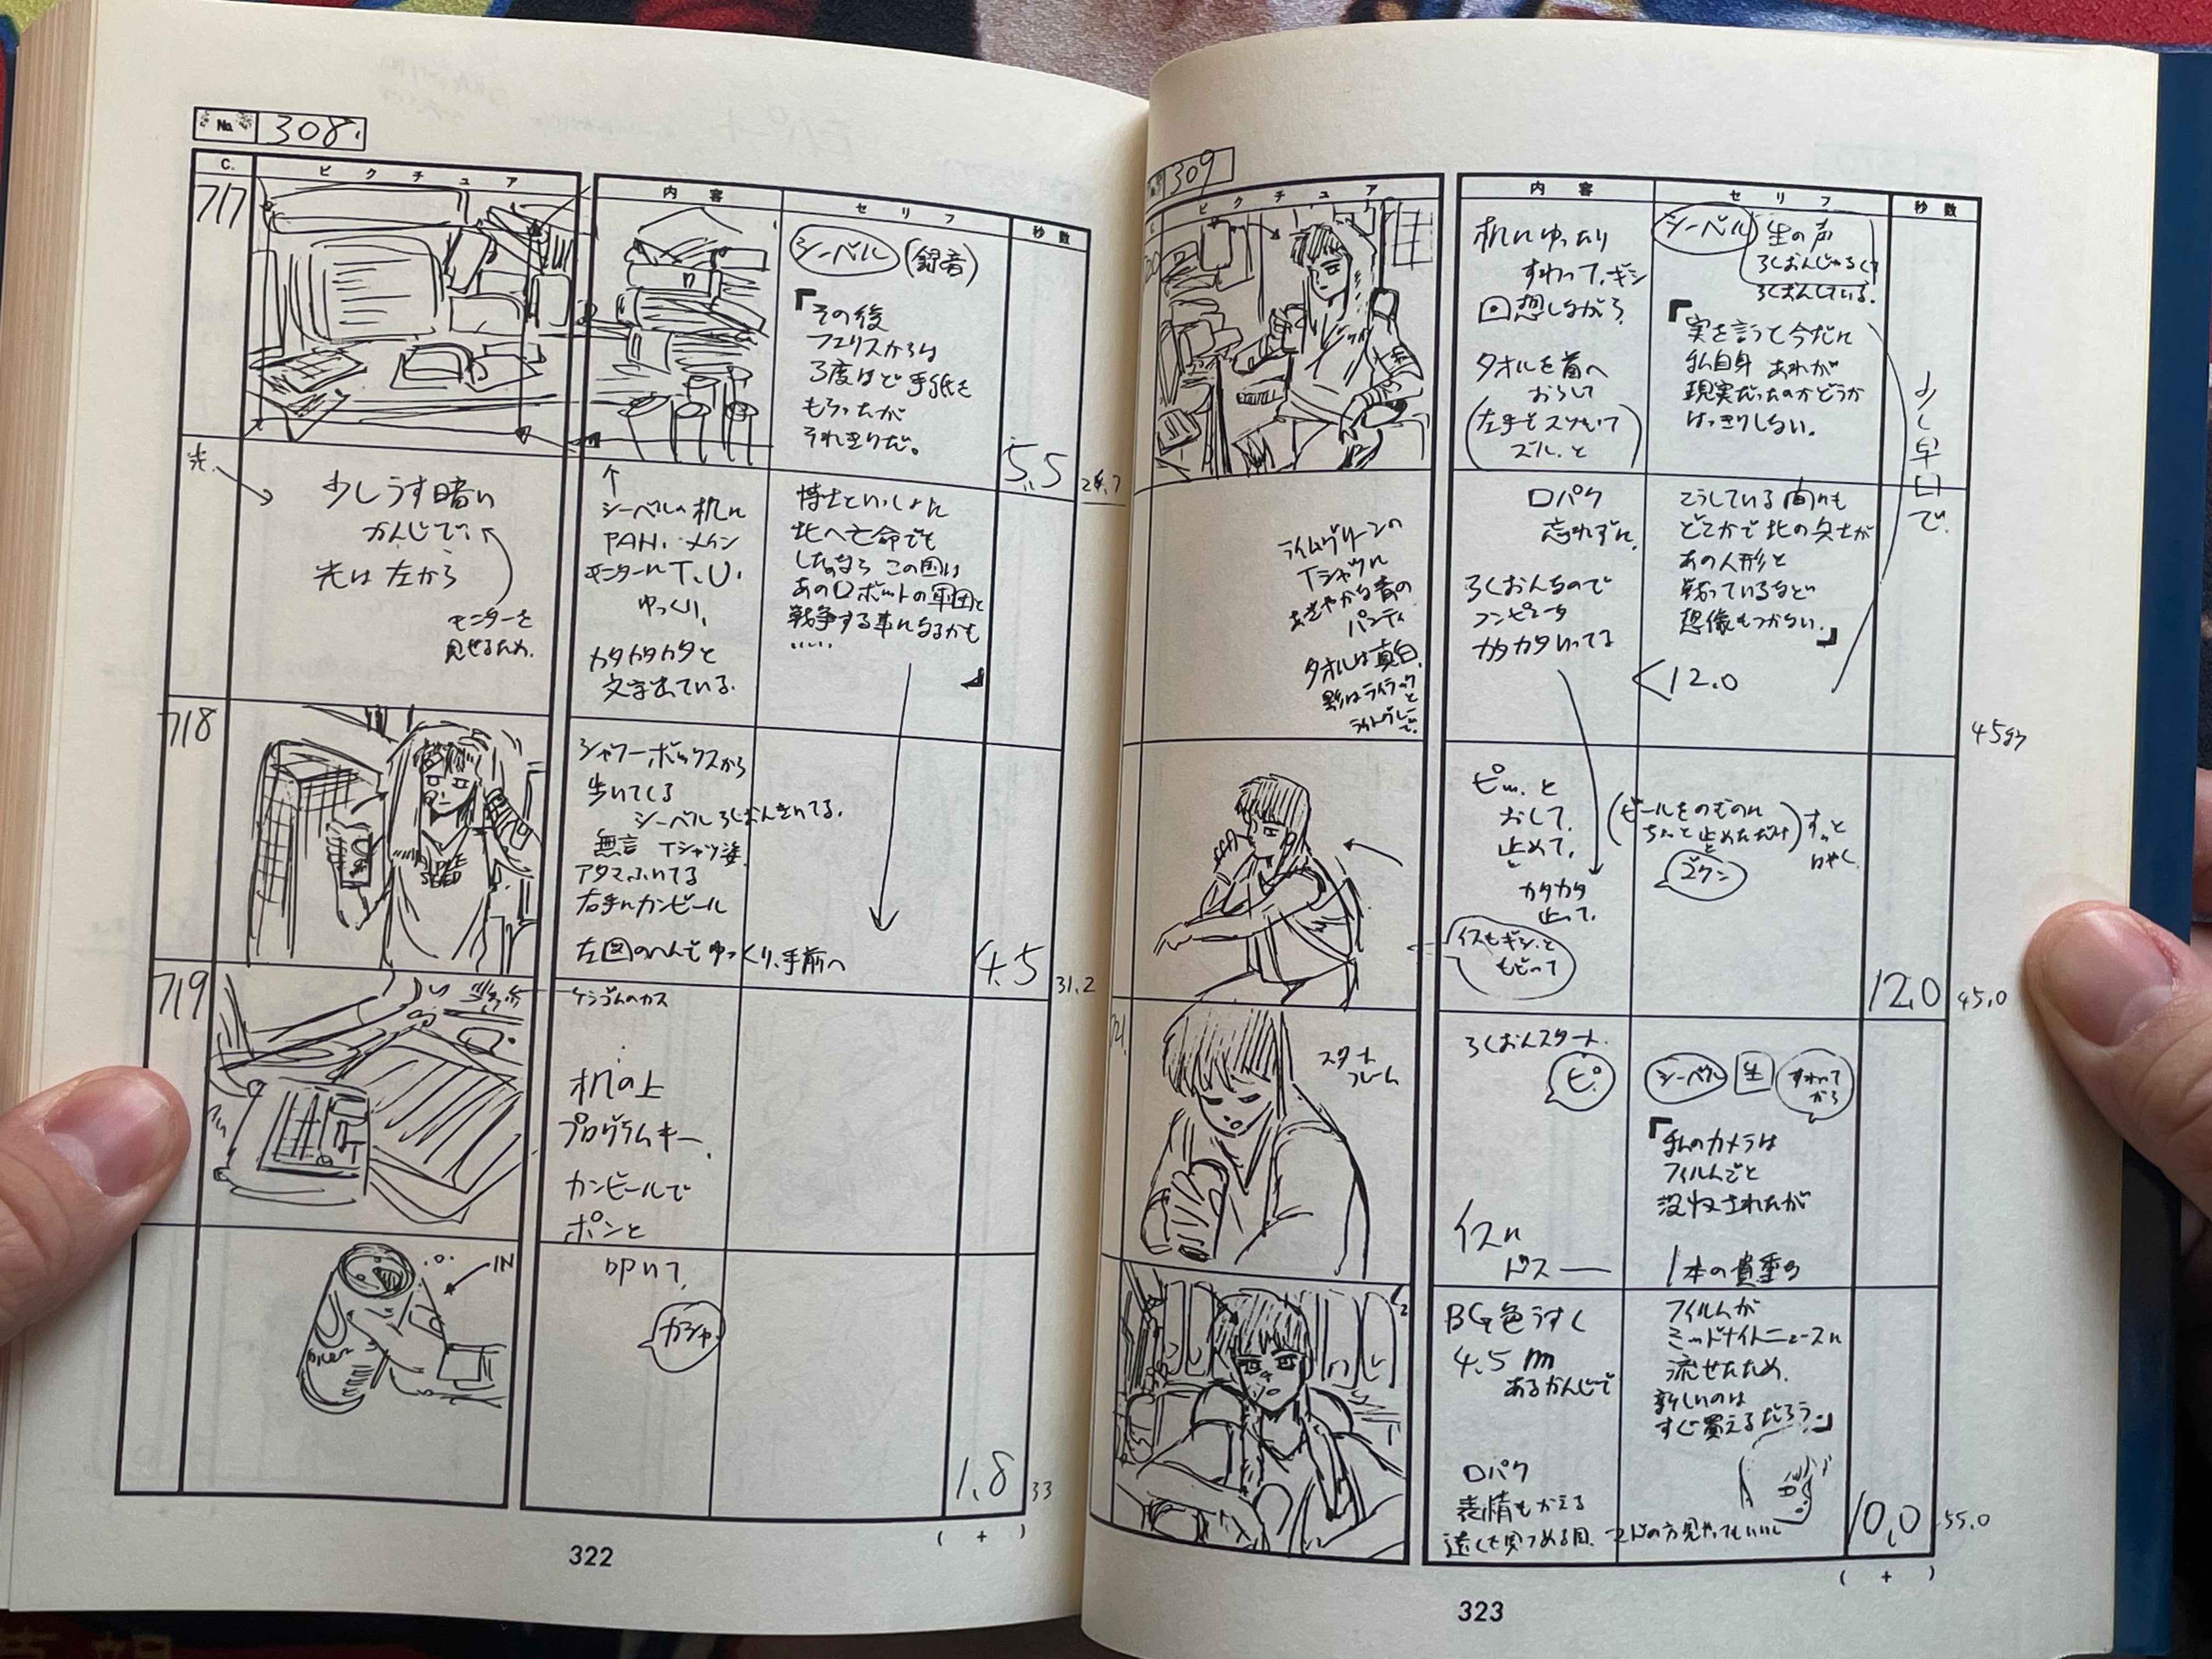 No. 308.
C.
ピクチュア
内容
セリフ
秒数
717
シーベル (録音)
『その後
フェリスからは
3度ほど手紙を
もらったが
それきりだ。
5.5
光
少しうす暗い
かんじで。
光は左から
モニターを
見せるため。
↑
シーベルの机に
PAN. メイン
モニターにT.U.
ゆっくり。
カタカタカタと
文字出ている。
博士といっしょに
北へ亡命でも
したのなら この国は
あのロボットの軍団と
戦争する事になるかも
……
』
718
シャワーボックスから
歩いてくる
シーベル ろくおんきいてる。
無言 Tシャツ姿
アタマふいてる
右手にカンビール
左図のへんでゆっくり、手前へ
4.5
31.2
719
ケシゴムのカス
机の上
プログラムキー、
カンビールで
ポンと
IN
叩いて、
カシャ
1.8
33
( + )
322
309
ピクチュア
内容
セリフ
秒数
机にゆったり
すわって、ギシ
回想しながら
タオルを首へ
おろして
シーベル
生の声
ろくおんじゃなくて
ろくおんしている。
『実を言うと今だに
私自身 あれが
現実だったのかどうか
はっきりしない。
少し早口で。
ライムグリーンの
Tシャツに
あざやかな青の
パンティ
タオルは真白。
影はライラックと
ライトグレーで。
口パク
忘れずに。
ろくおん中なので
コンピュータ
カタカタいってる
こうしている間にも
どこかで北の兵士が
あの人形と
戦っているなど
想像もつかない。』
12.0
ピッ. と
おして
止めて、
カタカタ
止って、
イスもギシ. と
もどって
(ビールをのむのに
ちょっと止めただけ)
ゴクン
12.0
45.0
721.
スタート
フレーム
ろくおんスタート.
ピ.
シーベル
生
すわって
から
『私のカメラは
フィルムごと
没収されたが
イスに
ドスー
1本の貴重な
BG色うすく
4.5m
あるかんじで
フィルムが
ミッドナイトニュースに
流せたため、
新しいのは
すぐ買えるだろう。』
口パク
表情もかえる
遠くを見つめる目. マドの方見やってもいいし
10.0
55.0
( + )
323